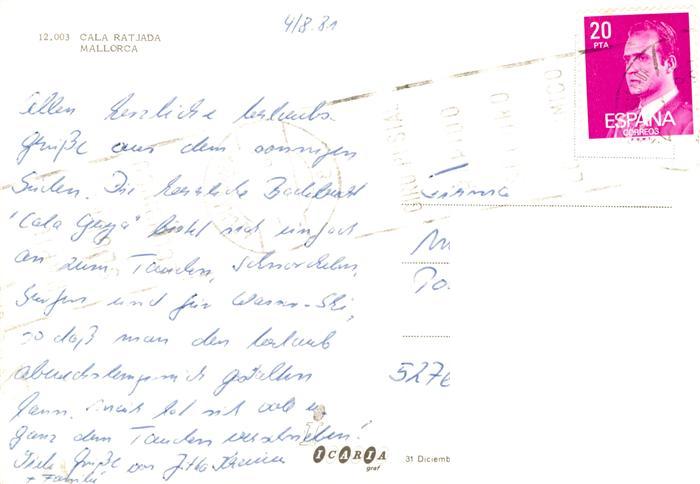 12.003 CALA RATJADA
MALLORCA
4/8.81
20
PTA
ESPAÑA
CORREOS
Allen herzliche Urlaubs-
grüße aus dem sonnigen
Süden. Die herrliche Badebucht
"Cala Guya" bietet sich einfach
an zum Tauchen, Schnorcheln,
Surfen und für Wasser-Ski,
so daß man den Urlaub
abwechslungsreich gestalten
kann. hat sich voll u.
ganz dem Tauchen verschrieben!
Viele Grüße von Jutta
+ Familie
Firma
527
ICARIA
graf
31 Diciemb